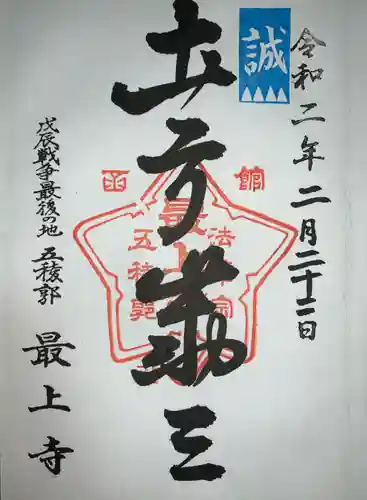 誠
令和二年二月二十二日
土方歳三
函館
法華宗
最上寺
五稜郭
戊辰戦争最後の地 五稜郭
最上寺